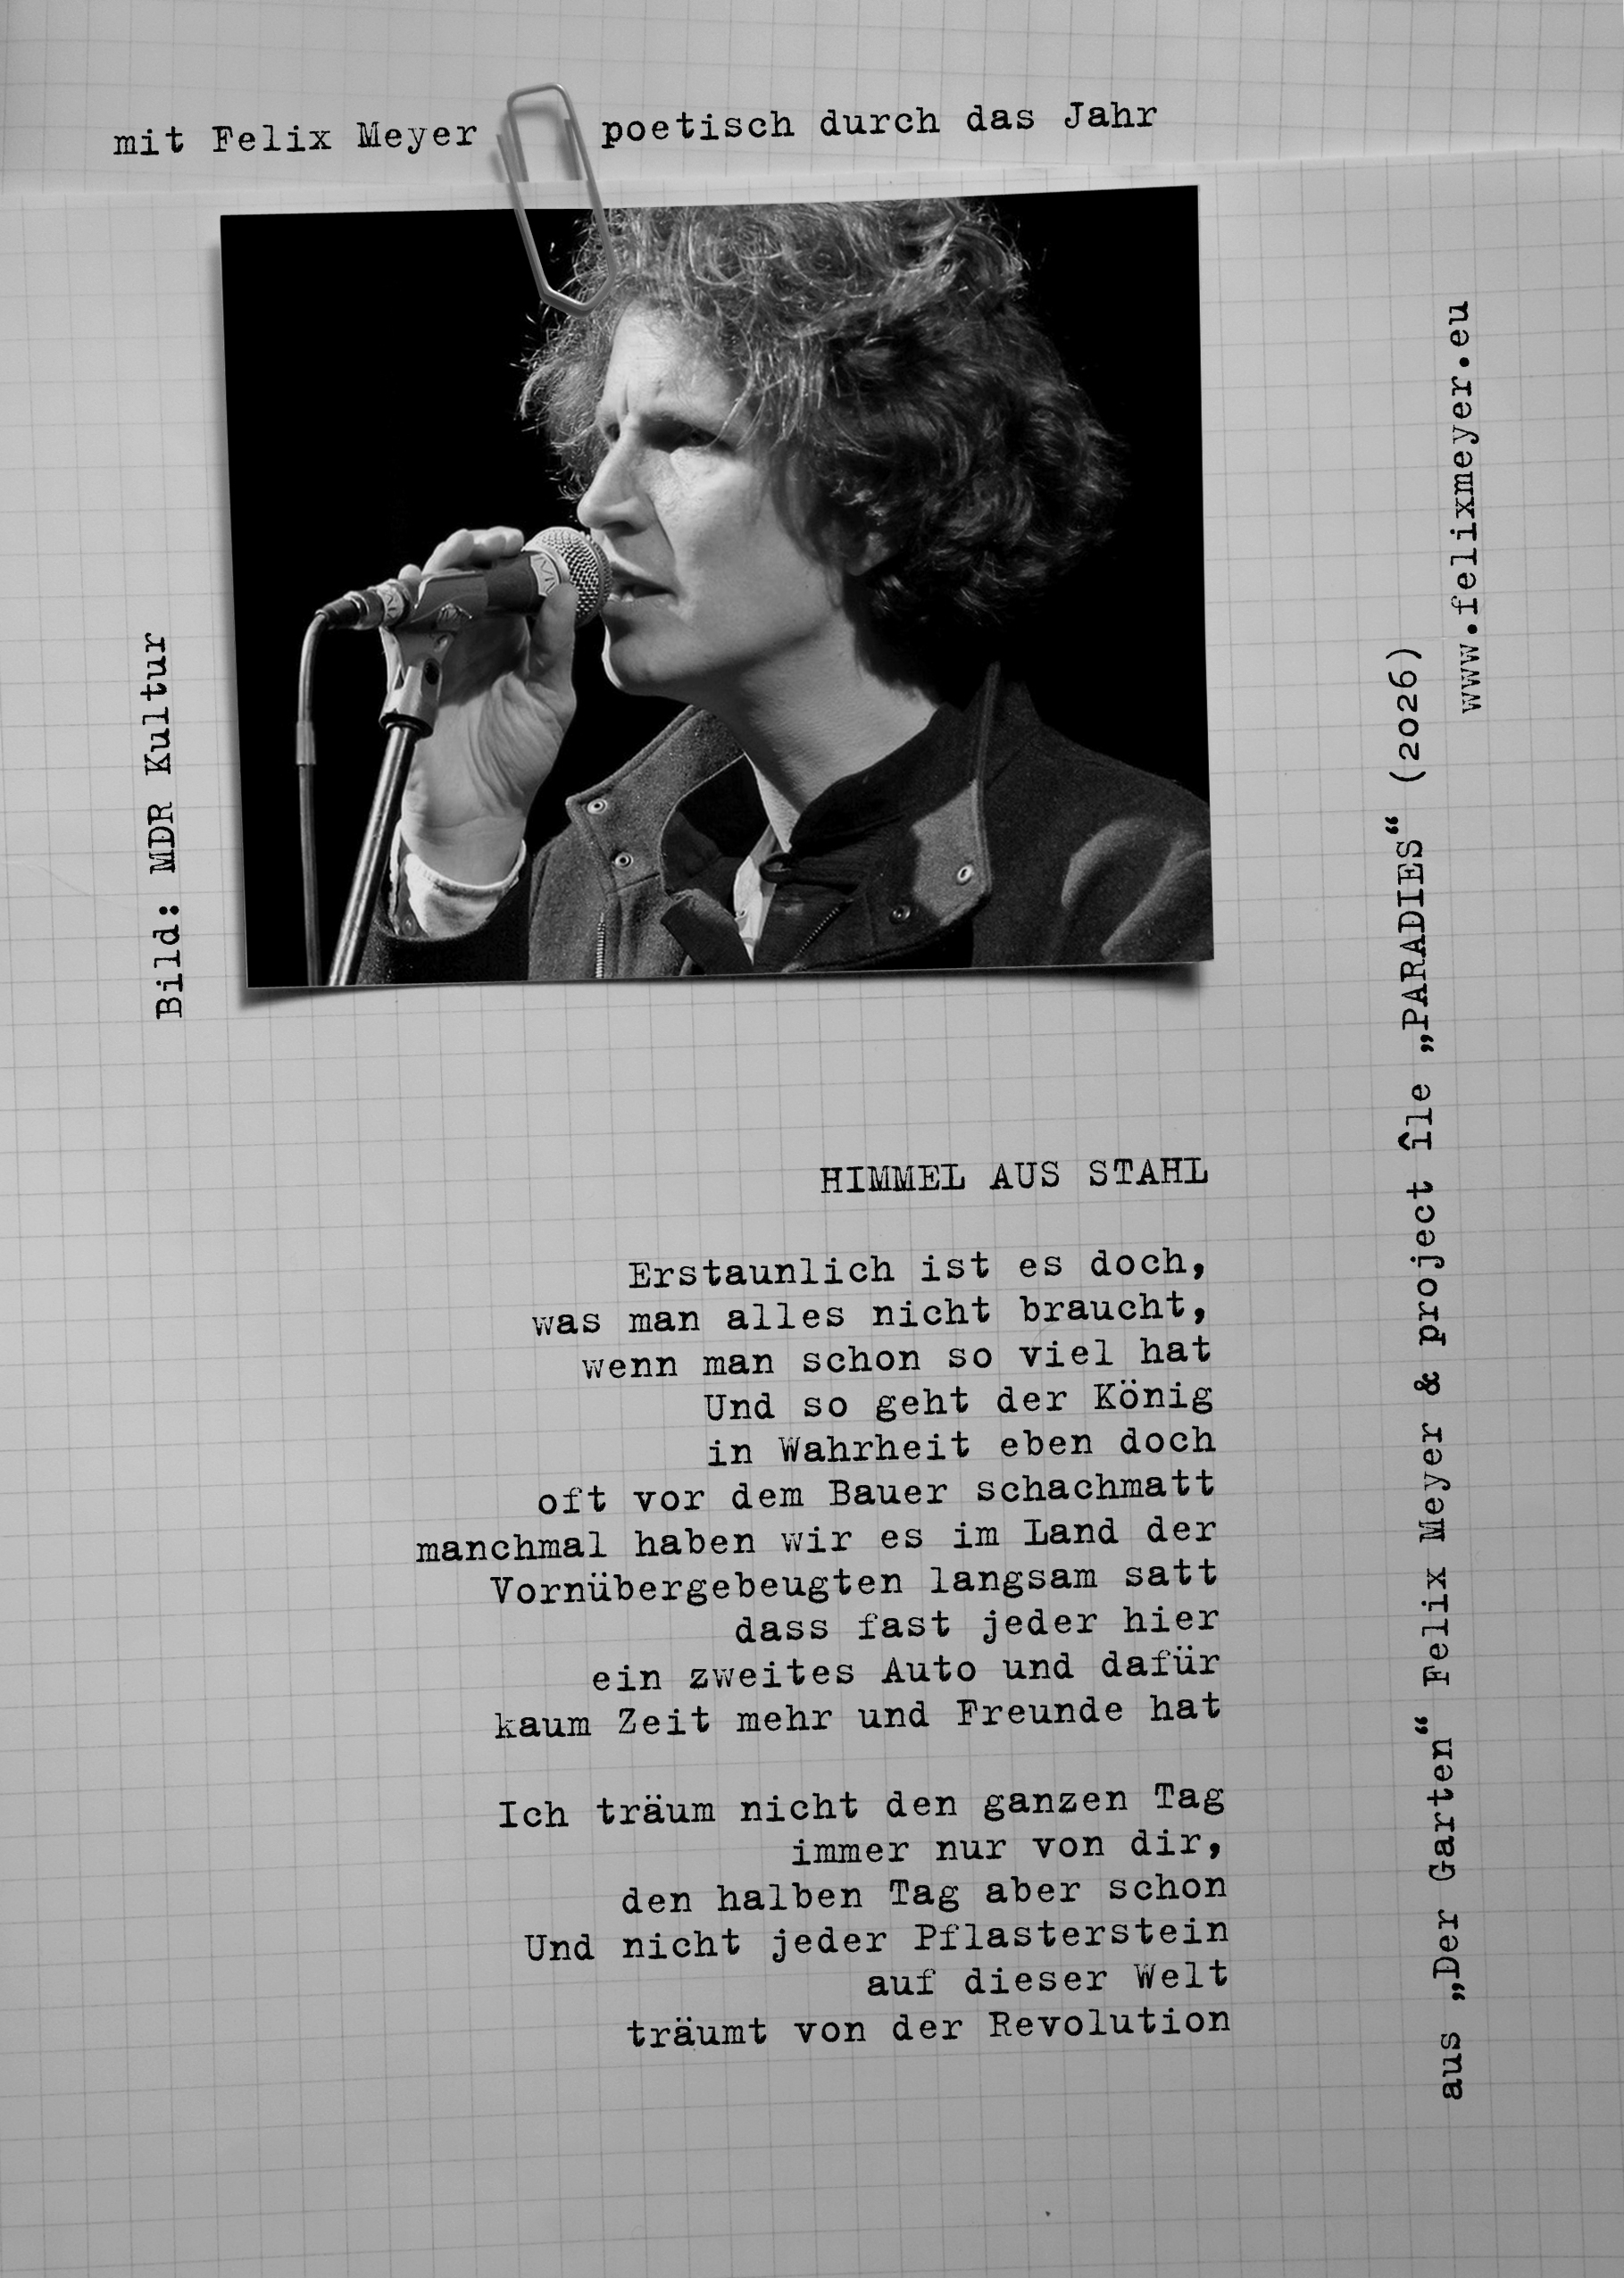 mit Felix Meyer poetisch durch das Jahr
Bild: MDR Kultur
HIMMEL AUS STAHL
Erstaunlich ist es doch,
was man alles nicht braucht,
wenn man schon so viel hat
Und so geht der König
in Wahrheit eben doch
oft vor dem Bauer schachmatt
manchmal haben wir es im Land der
Vornübergebeugten langsam satt
dass fast jeder hier
ein zweites Auto und dafür
kaum Zeit mehr und Freunde hat
Ich träum nicht den ganzen Tag
immer nur von dir,
den halben Tag aber schon
Und nicht jeder Pflasterstein
auf dieser Welt
träumt von der Revolution
aus „Der Garten“ Felix Meyer & project île „PARADIES“ (2026)
www.felixmeyer.eu